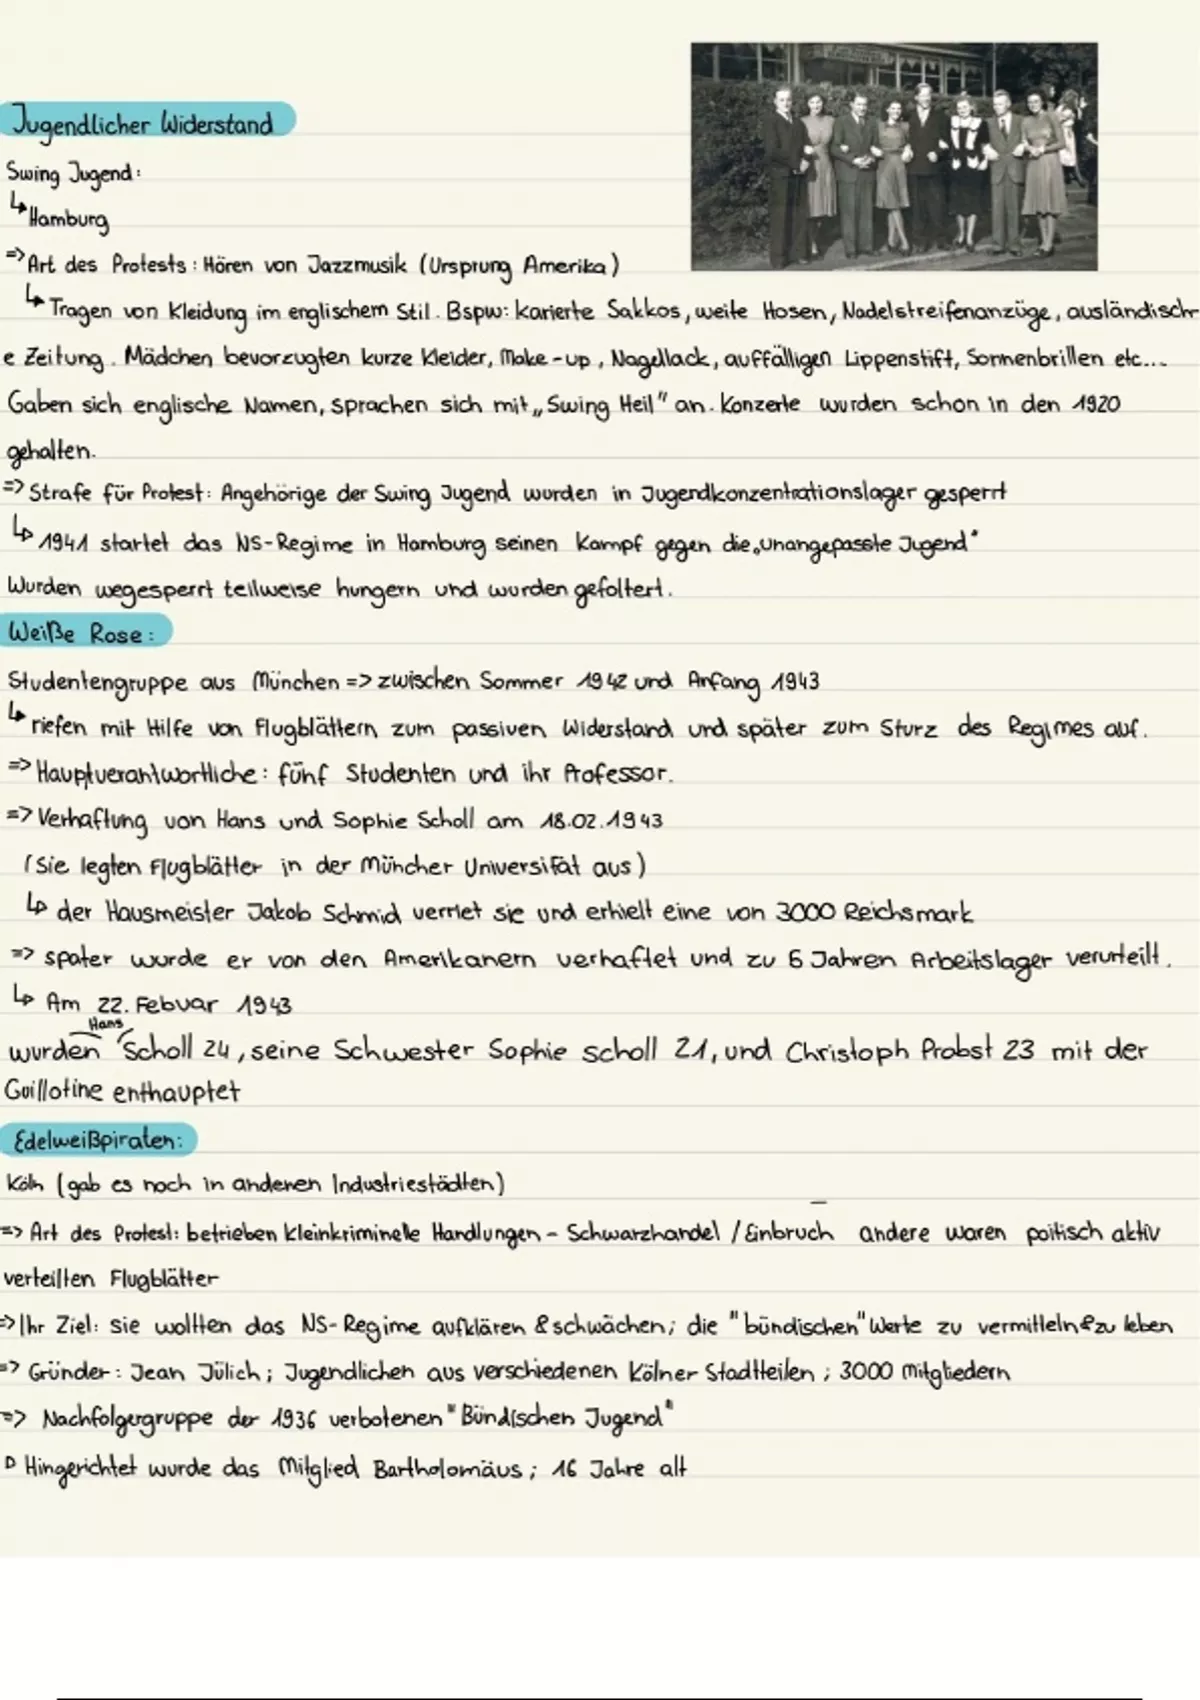 Jugendlicher Widerstand
Swing Jugend:
↳ Hamburg
=> Art des Protests: Hören von Jazzmusik (Ursprung Amerika)
↳ Tragen von Kleidung im englischem Stil. Bspw: karierte Sakkos, weite Hosen, Nadelstreifenanzüge, ausländischr
e Zeitung. Mädchen bevorzugten kurze Kleider, Make-up, Nagellack, auffälligen Lippenstift, Sonnenbrillen etc...
Gaben sich englische Namen, sprachen sich mit „Swing Heil" an. Konzerte wurden schon in den 1920
gehalten.
=> Strafe für Protest: Angehörige der Swing Jugend wurden in Jugendkonzentrationslager gesperrt
↳ 1941 startet das NS-Regime in Hamburg seinen Kampf gegen die „unangepasste Jugend"
Wurden wegesperrt teilweise hungern und wurden gefoltert.
Weiße Rose:
Studentengruppe aus München => zwischen Sommer 1942 und Anfang 1943
↳ riefen mit Hilfe von Flugblättern zum passiven Widerstand und später zum Sturz des Regimes auf.
=> Hauptverantwortliche: fünf Studenten und ihr Professor.
=> Verhaftung von Hans und Sophie Scholl am 18.02.1943
(Sie legten Flugblätter in der Müncher Universität aus)
↳ der Hausmeister Jakob Schmid verriet sie und erhielt eine von 3000 Reichsmark
=> später wurde er von den Amerikanern verhaftet und zu 5 Jahren Arbeitslager verurteilt.
↳ Am 22. Febuar 1943
wurden Hans Scholl 24, seine Schwester Sophie scholl 21, und Christoph Probst 23 mit der
Guillotine enthauptet
Edelweißpiraten:
Köln (gab es noch in anderen Industriestädten)
=> Art des Protest: betrieben kleinkriminelle Handlungen - Schwarzhandel / Einbruch andere waren poitisch aktiv
verteilten Flugblätter
=> Ihr Ziel: sie wollten das NS-Regime aufklären & schwächen; die "bündischen" Werte zu vermitteln & zu leben
=> Gründer: Jean Jülich; Jugendlichen aus verschiedenen Kölner Stadtteilen; 3000 Mitgliedern
=> Nachfolgergruppe der 1936 verbotenen "Bündischen Jugend"
D Hingerichtet wurde das Mitglied Bartholomäus; 16 Jahre alt